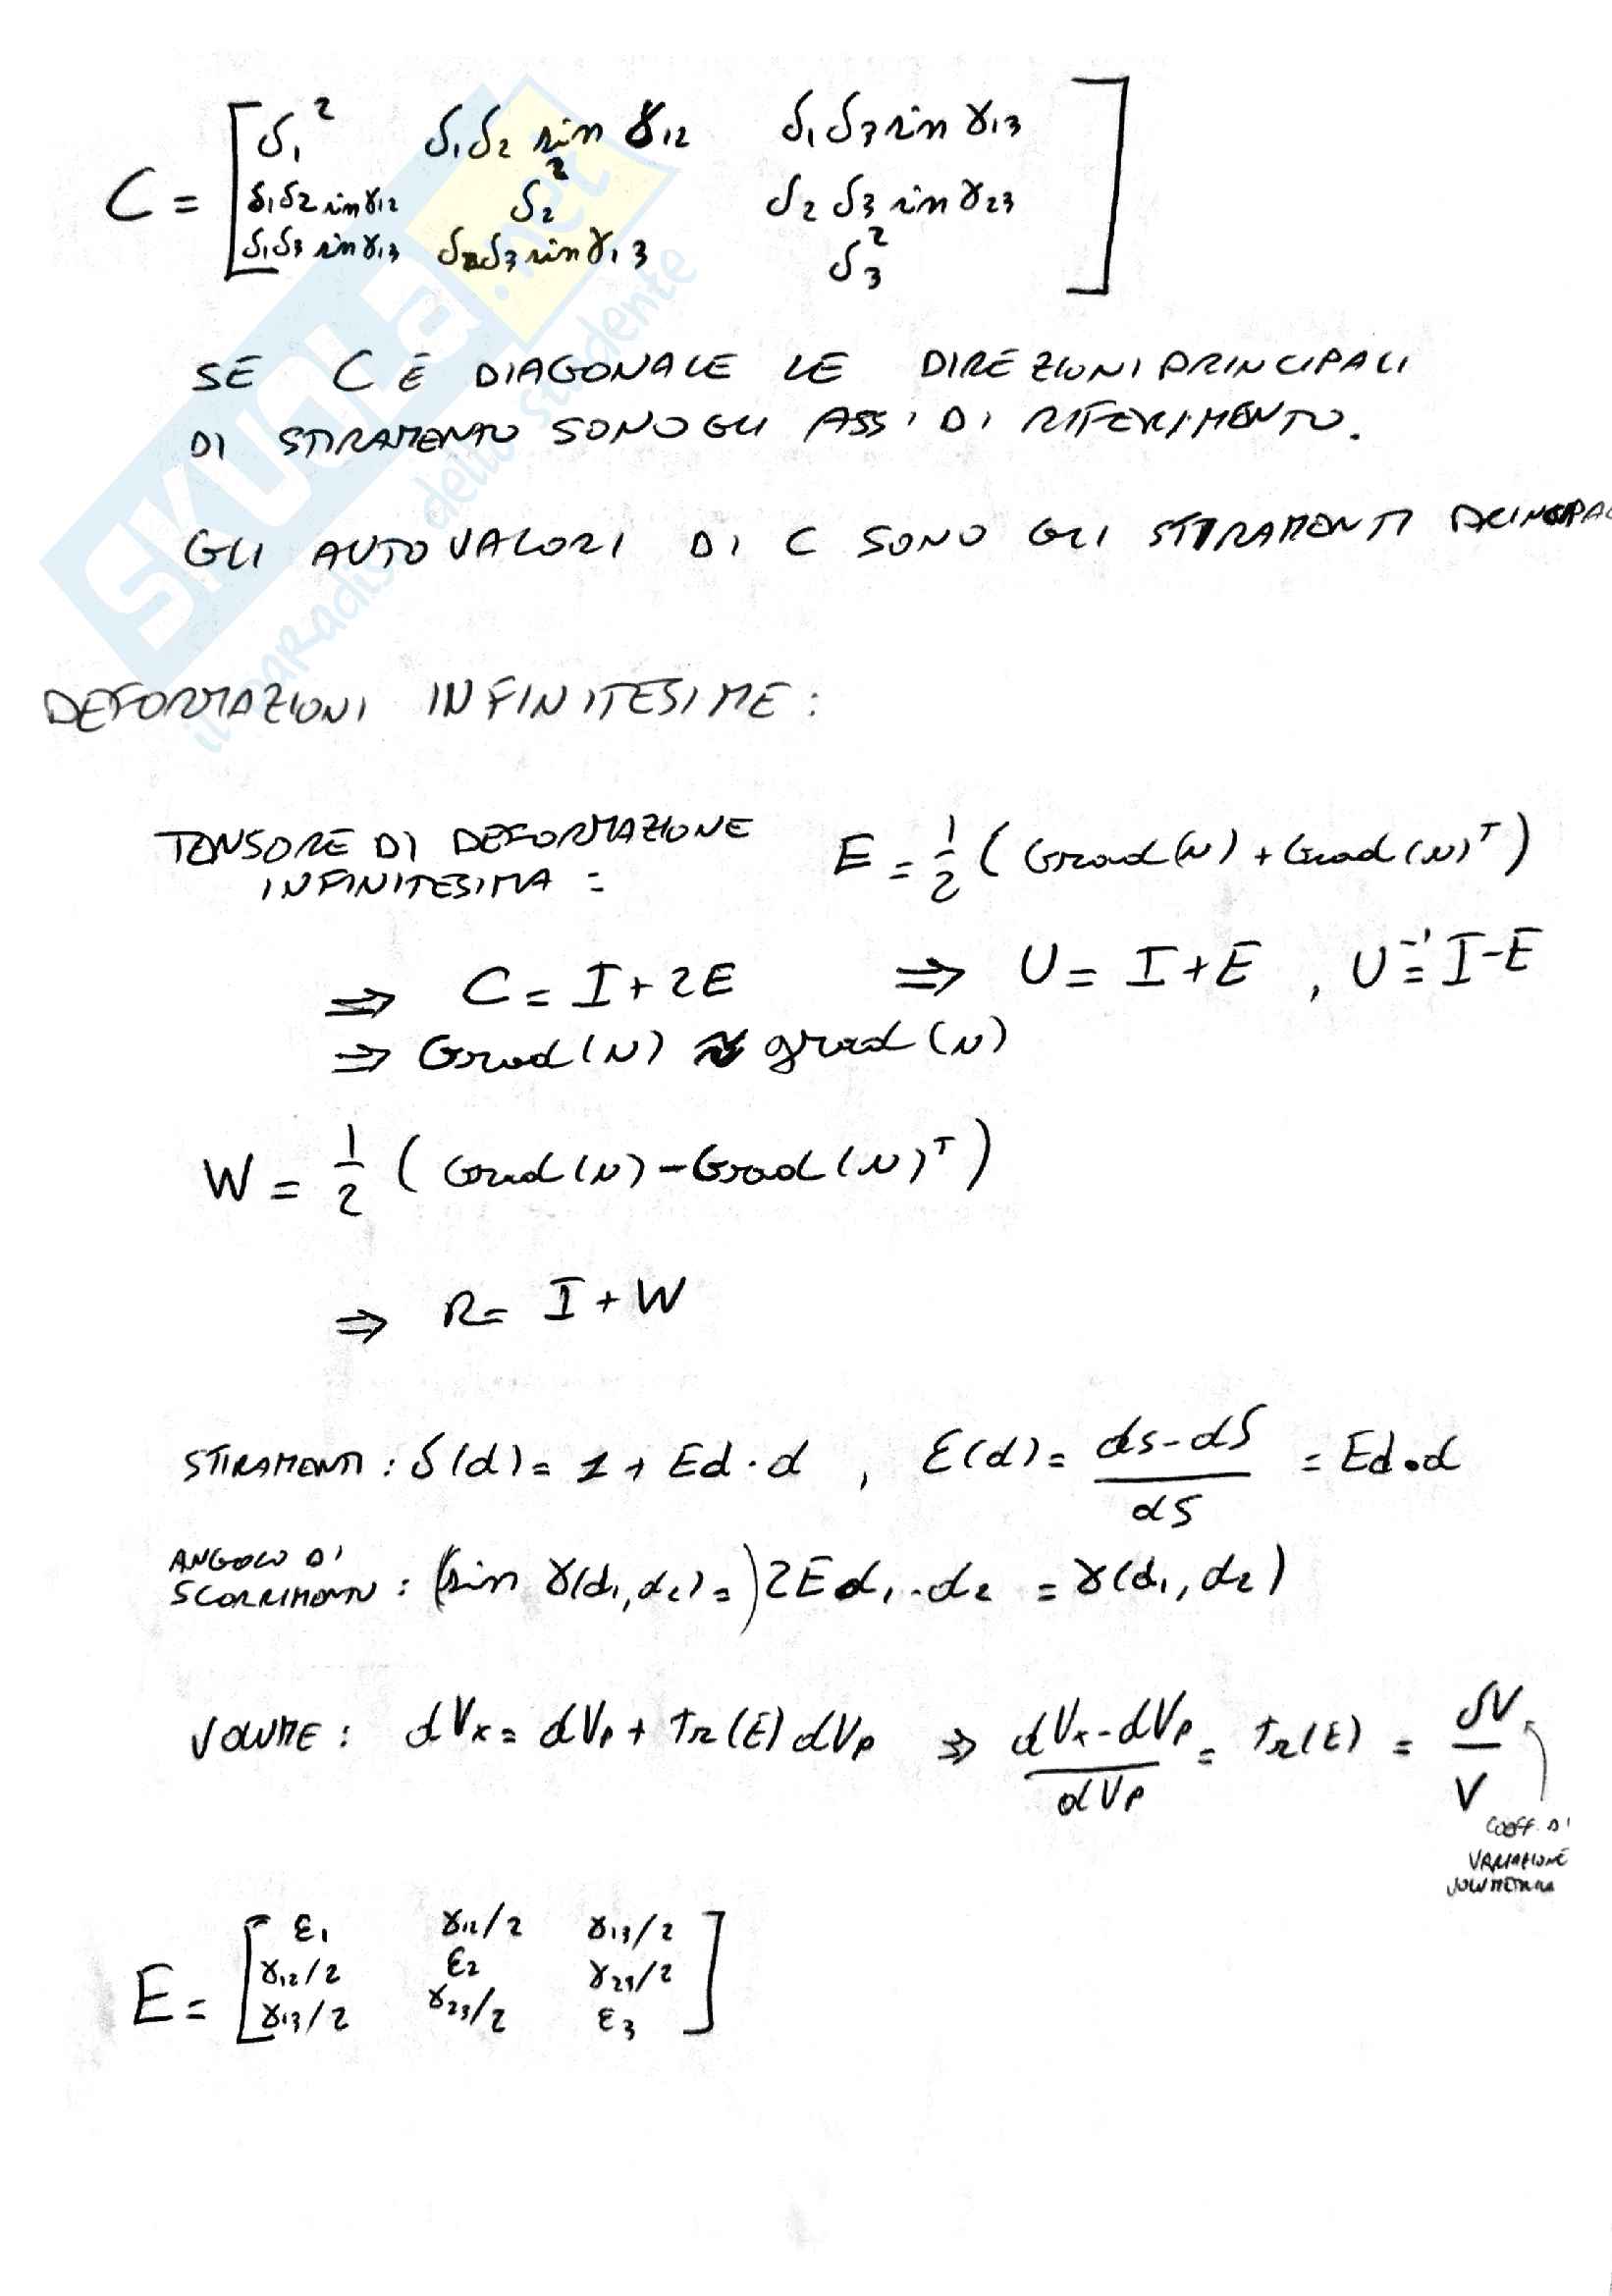 C = [ δ₁² δ₁δ₂ sin γ₁₂ δ₁δ₃ sin γ₁₃ ]
δ₁δ₂ sin γ₁₂ δ₂² δ₂ δ₃ sin γ₂₃
δ₁δ₃ sin γ₁₃ δ₂δ₃ sin γ₁₃ δ₃²
SE C È DIAGONALE LE DIREZIONI PRINCIPALI
DI STIRAMENTO SONO GLI ASSI DI RIFERIMENTO.
GLI AUTOVALORI DI C SONO GLI STIRAMENTI PRINCIPAL
SKUOLa.net
il paradiso dello studente
DEFORMAZIONI INFINITESIME :
TENSORE DI DEFORMAZIONE
INFINITESIMA = E = 1/2 ( Grad(u) + Grad(u)ᵀ )
⇒ C = I + 2E ⇒ U = I + E , U⁻¹ = I - E
⇒ Grad(u) ≈ grad(u)
W = 1/2 ( Grad(u) - Grad(u)ᵀ )
⇒ R = I + W
STIRAMENTI : δ(d) = 1 + Ed · d , ε(d) = (ds - dS)/dS = Ed · d
ANGOLO DI
SCORRIMENTO : (sin γ(d₁, d₂) =) 2E d₁ · d₂ = γ(d₁, d₂)
VOLUME : dVx = dVp + tr(E) dVp ⇒ (dVx - dVp)/dVp = tr(E) = δV/V
COEFF. DI
VARIAZIONE
VOLUMETRICA
E = [ ε₁ γ₁₂/2 γ₁₃/2 ]
γ₁₂/2 ε₂ γ₂₃/2
γ₁₃/2 γ₂₃/2 ε₃